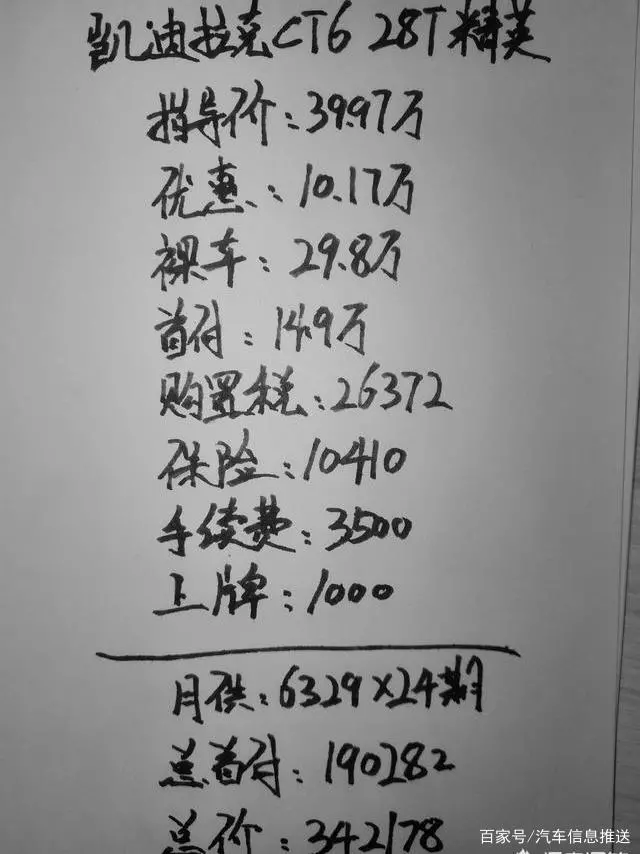 凯迪拉克CT6 28T精英
指导价:39.97万
优惠:10.17万
裸车:29.8万
首付:14.9万
购置税:26372
保险:10410
手续费:3500
上牌:1000
月供:6329×24期
总首付:190282
总价:342178
百家号/汽车信息推送